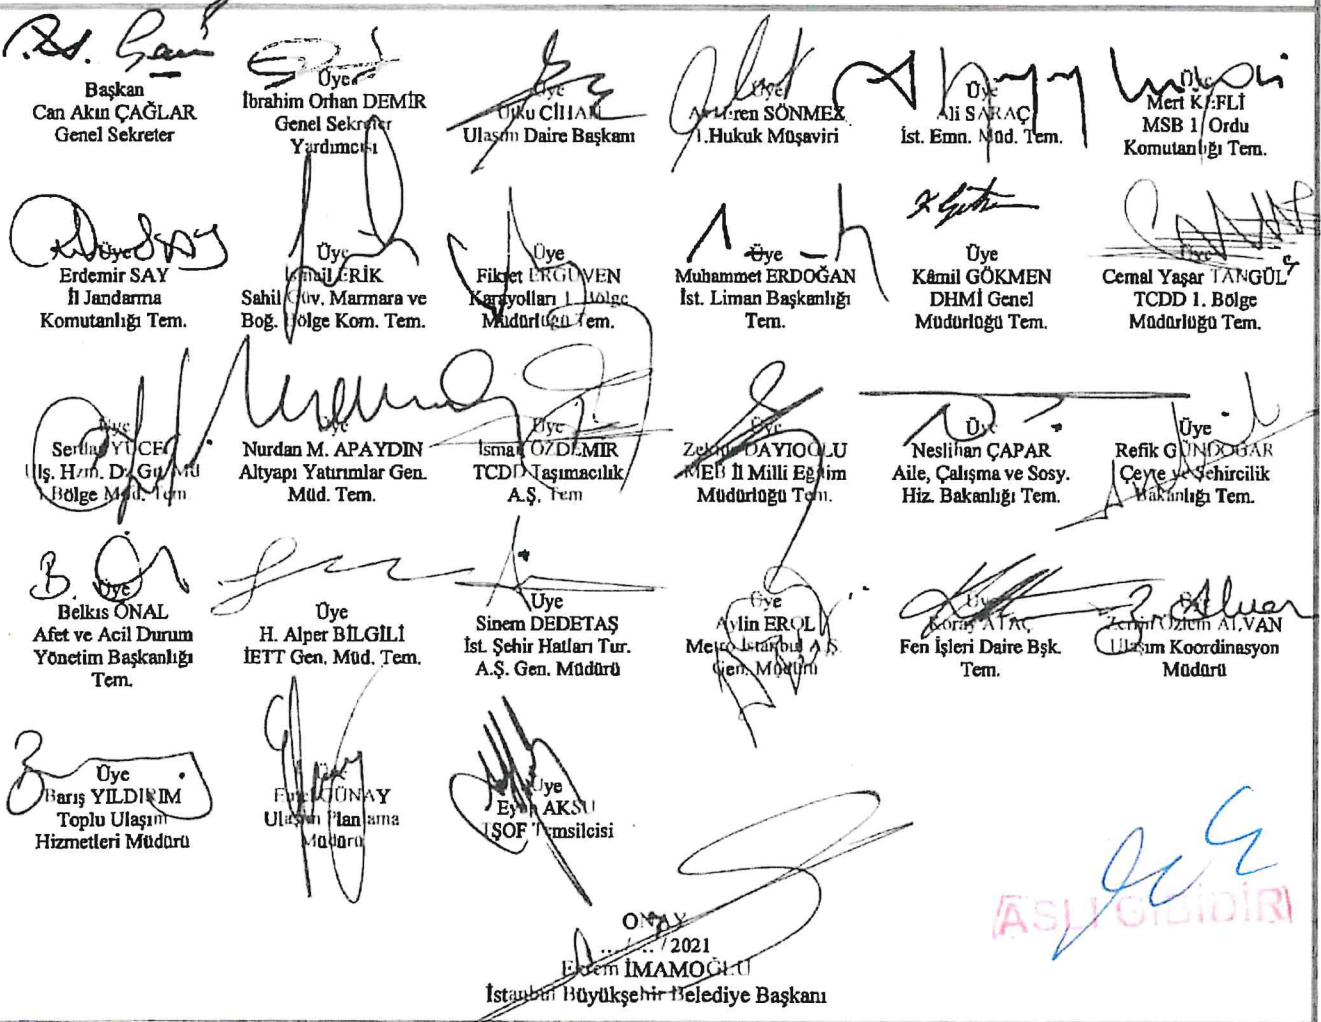 Başkan
Can Akın ÇAĞLAR
Genel Sekreter
Üye
İbrahim Orhan DEMİR
Genel Sekreter
Yardımcısı
Üye
Utku CİHAN
Ulaşım Daire Başkanı
Üye
Eren SÖNMEZ
1.Hukuk Müşaviri
Üye
Ali SARAÇ
İst. Emn. Müd. Tem.
Üye
Mert KEFLİ
MSB 1. Ordu
Komutanlığı Tem.
Üye
Erdemir SAY
İl Jandarma
Komutanlığı Tem.
Üye
İsmail ERİK
Sahil Güv. Marmara ve
Boğ. Bölge Kom. Tem.
Üye
Fikret ERGÜVEN
Karayolları 1. Bölge
Müdürlüğü Tem.
Üye
Muhammet ERDOĞAN
İst. Liman Başkanlığı
Tem.
Üye
Kâmil GÖKMEN
DHMİ Genel
Müdürlüğü Tem.
Üye
Cemal Yaşar TANGÜL
TCDD 1. Bölge
Müdürlüğü Tem.
Üye
Serdar YÜCEL
Ulş. Hzm. D. Gn. Md
1 Bölge Müd. Tem.
Nurdan M. APAYDIN
Altyapı Yatırımlar Gen.
Müd. Tem.
Üye
İsmail ÖZDEMİR
TCDD Taşımacılık
A.Ş. Tem
Üye
DAYIOĞLU
MEB İl Milli Eğitim
Müdürlüğü Tem.
Üye
Neslihan ÇAPAR
Aile, Çalışma ve Sosy.
Hiz. Bakanlığı Tem.
Üye
Refik GÜNDOĞAR
Çevre ve Şehircilik
Bakanlığı Tem.
Üye
Belkıs ÖNAL
Afet ve Acil Durum
Yönetim Başkanlığı
Tem.
Üye
H. Alper BİLGİLİ
İETT Gen. Müd. Tem.
Üye
Sinem DEDETAŞ
İst. Şehir Hatları Tur.
A.Ş. Gen. Müdürü
Üye
Aylin EROL
Metro İstanbul A.Ş.
Gen. Müdürü
Üye
Koray ATAÇ
Fen İşleri Daire Bşk.
Tem.
Üye
Özlem ALVAN
Ulaşım Koordinasyon
Müdürü
Üye
Barış YILDIRIM
Toplu Ulaşım
Hizmetleri Müdürü
Üye
GÜNAY
Ulaşım Planlama
Müdürü
Üye
Eyüp AKSU
TŞOF Temsilcisi
ASLI GİBİDİR
ONAY
.../.../2021
Ekrem İMAMOĞLU
İstanbul Büyükşehir Belediye Başkanı